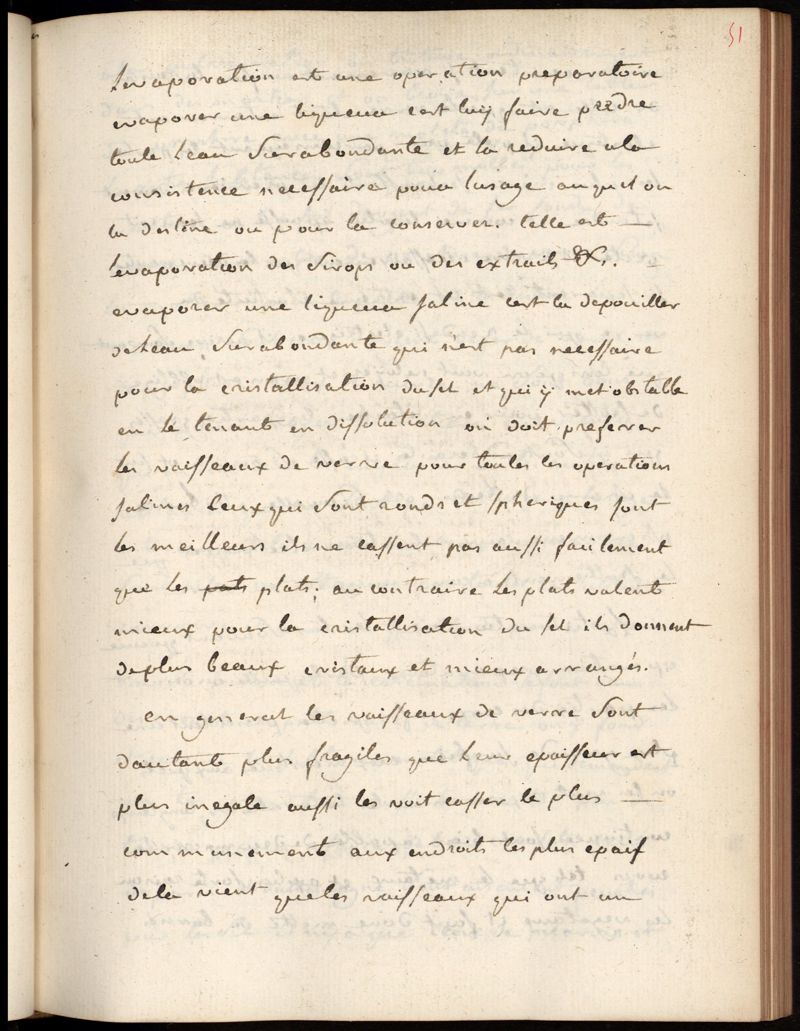 51
levaporation est une operation preparatoire
evaporer une liqueur cest luÿ faire perdre
toute leau surabondante et la reduire ala
consistence necessaire pour lusage auquel on
la destine ou pour la conserver. telle est —
levaporation des sirops ou des extraits &c. —
evaporer une liqueur saline cest la depouiller
deleau surabondante qui n'est pas necessaire
pour la cristallisation du sel et qui ÿ met obstacle
en le tenant en dissolution on doit preferrer
les vaisseaux de verre pour toutes les operations
salines ceux qui sont ronds et spheriques sont
les meilleurs ils ne cassent pas aussi facilement
que les plats; au contraire les plats valent
mieux pour la cristallisation du sel ils donnent
deplus beaux cristaux et mieux arrangés.
en general les vaisseaux de verre sont
dautant plus fragiles que leur epaisseur est
plus inegale aussi les voit casser le plus —
communement aux endroits les plus epais
dela vient queles vaisseaux qui ont un